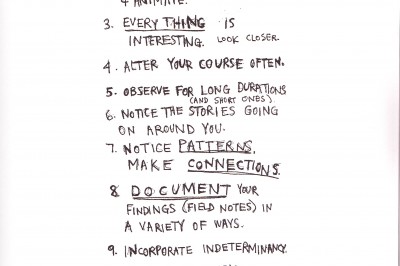 & ANIMATE.
3. EVERYTHING IS
INTERESTING. LOOK CLOSER.
4. ALTER YOUR COURSE OFTEN.
5. OBSERVE FOR LONG DURATIONS
(AND SHORT ONES).
6. NOTICE THE STORIES GOING
ON AROUND YOU.
7. NOTICE PATTERNS,
MAKE CONNECTIONS.
8. DOCUMENT YOUR
FINDINGS (FIELD NOTES) IN
A VARIETY OF WAYS.
9. INCORPORATE INDETERMINANCY.